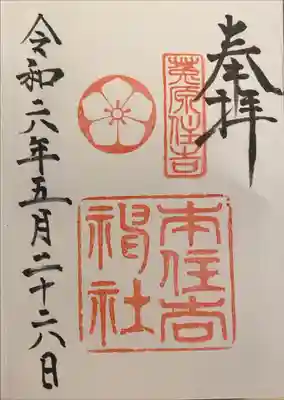 奉拝
菟原住吉
本住吉
神社
令和六年五月二十六日